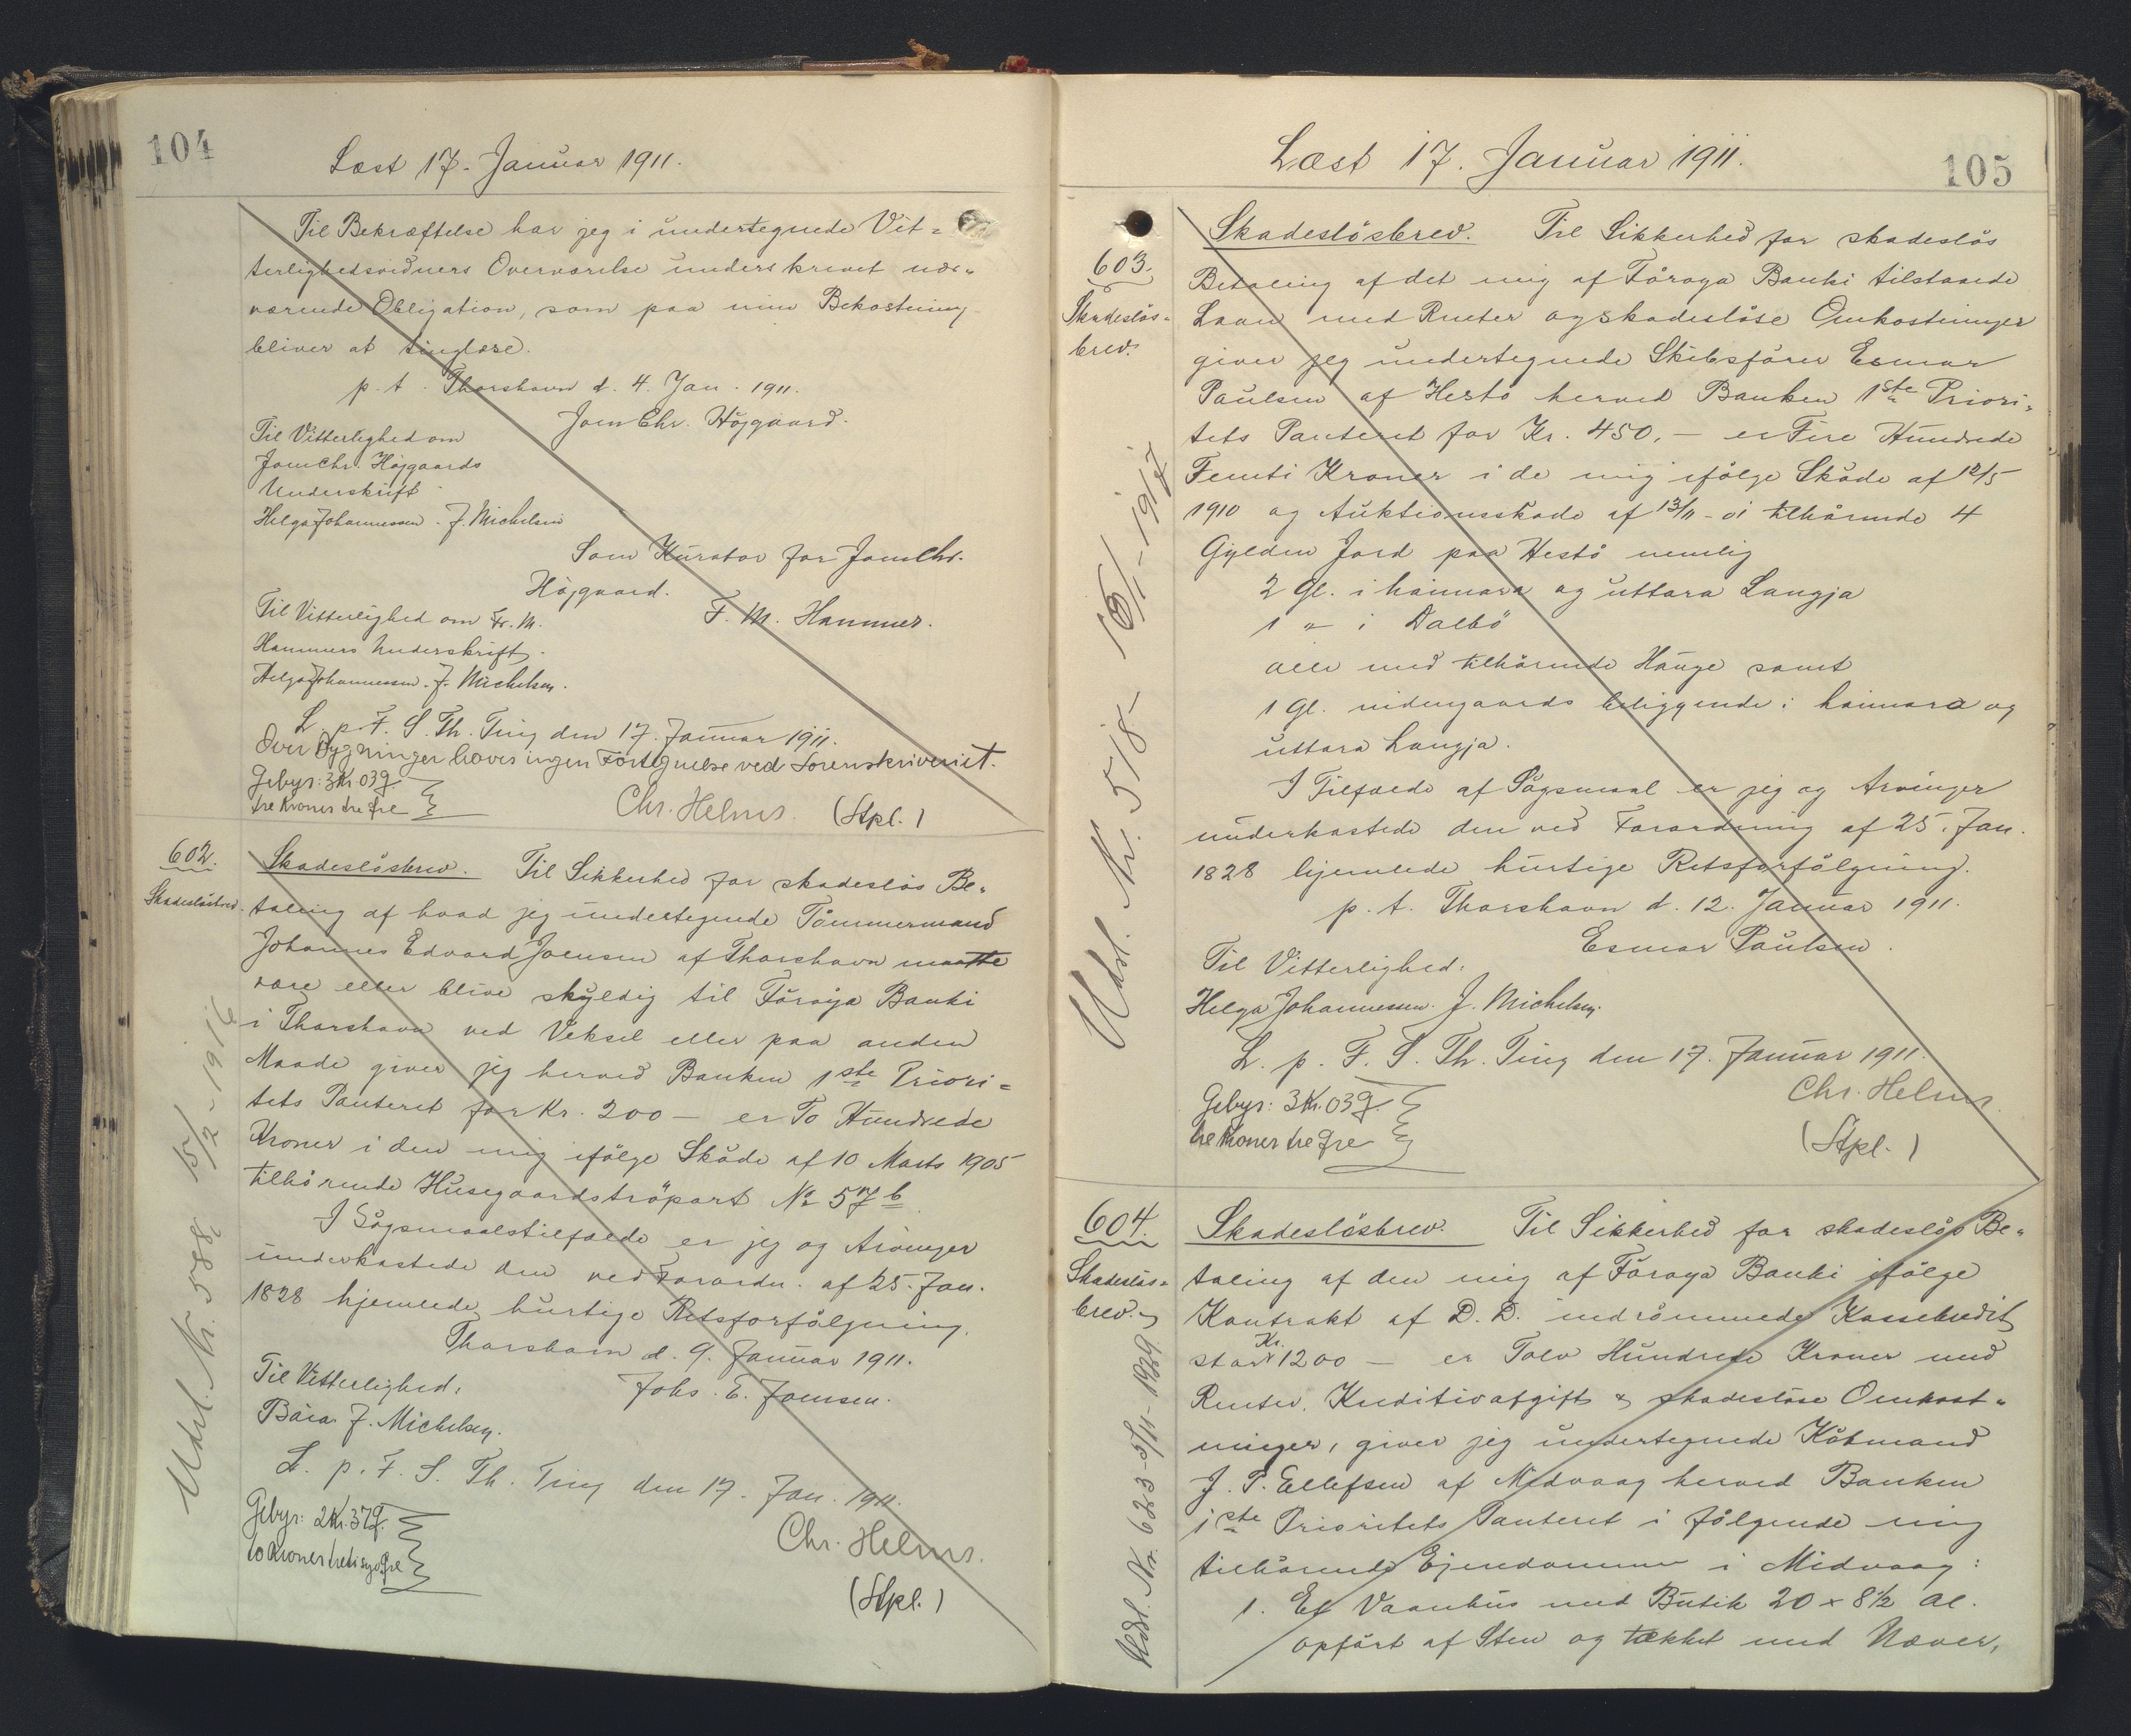 104
Læst 17. Januar 1911.
Til Bekræftelse har jeg i undertegnede Vit=
terlighedsvidners Overværelse underskrevet nær=
værende Obligation, som paa min Bekostning
bliver at tinglæse.
p. t. Thorshavn d. 4. Jan. 1911.
Joen Chr. Højgaard.
Til Vitterlighed om
Joen Chr. Højgaards
Underskrift
Helga Johannessen. J. Michelsen
Som Kurator for Joen Chr.
Højgaard.
F. M. Hammer.
Til Vitterlighed om Fr. M.
Hammers Underskrift.
Helga Johannessen. J. Michelsen.
L. p. F. S. Th. Ting den 17. Januar 1911.
Over Bygninger haves ingen Fortegnelse ved Sorenskriveriet.
Gebyr: 3 Kr. 03 Ø.
tre Kroner tre Øre
Chr. Helms. (Stpl.)
602.
Skadesløsbrev.
Skadesløsbrev. Til Sikkerhed for skadesløs Be=
taling af hvad jeg undertegnede Tømmermand
Johannes Edvard Joensen af Thorshavn maatte
være eller blive skyldig til Føroya Banki
i Thorshavn ved Veksel eller paa anden
Maade giver jeg herved Banken 1ste Priori=
tets Panteret for Kr. 200 — er To Hundrede
Kroner i den mig ifølge Skøde af 10 Marts 1905
tilhørende Husegaardstrøpart № 57b
I Søgsmaalstilfælde er jeg og Arvinger
underkastede den ved Forordn. af 25. Jan.
1828 hjemlede hurtige Retsforfølgning.
Thorshavn d. 9. Januar 1911.
Johs. E. Joensen.
Til Vitterlighed:
Bára. J. Michelsen.
L. p. F. S. Th. Ting den 17. Jan. 1911.
Gebyr: 2 Kr. 37 Ø.
to Kroner tretisyv Øre
Chr. Helms.
(Stpl.)
Udsl. Nr. 588 15/2-1916
Læst 17. Januar 1911.
105
603.
Skadesløs=
brev.
Skadesløsbrev. Til Sikkerhed for skadesløs
Betaling af det mig af Føroya Banki tilstaaede
Laan med Renter og skadesløse Omkostninger
giver jeg undertegnede Skibsfører Esmar
Paulsen af Hestø herved Banken 1ste Priori=
tets Panteret for Kr. 450, — er Fire Hundrede
Femti Kroner i de mig ifølge Skøde af 12/5
1910 og Auktionsskøde af 13/11 - 01 tilhørende 4
Gylden Jord paa Hestø nemlig
2 Gl. i haimara og uttara Langja
1 " i Dalbø
alle med tilhørende Hauge samt
1 Gl. nidengaards beliggende i haimara og
uttara Langja.
I Tilfælde af Søgsmaal er jeg og Arvinger
underkastede den ved Forordning af 25. Jan.
1828 hjemlede hurtige Retsforfølgning.
p. t. Thorshavn d. 12. Januar 1911.
Esmar Paulsen.
Til Vitterlighed:
Helga Johannessen. J. Michelsen.
L. p. F. S. Th. Ting den 17. Januar 1911.
Gebyr: 3 Kr. 03 Ø.
tre Kroner tre Øre
Chr. Helms.
(Stpl.)
Udsl. Nr. 518-
604.
Skadesløs=
brev.
Skadesløsbrev. Til Sikkerhed for skadesløs Be=
taling af den mig af Føroya Banki ifølge
Kontrakt af D. D. indrømmede Kassekredit
stor Kr. 1200 — er Tolv Hundrede Kroner med
Renter, Kreditivafgift & skadesløse Omkost=
ninger, giver jeg undertegnede Købmand
J. P. Ellefsen af Midvaag herved Banken
1ste Prioritets Panteret i følgende mig
tilhørende Ejendomme i Midvaag:
1. Et Vaanhus med Butik 20 x 8½ Al.
opført af Sten og tækket med Næver,
Udsl. Nr. 623-5/11-1929